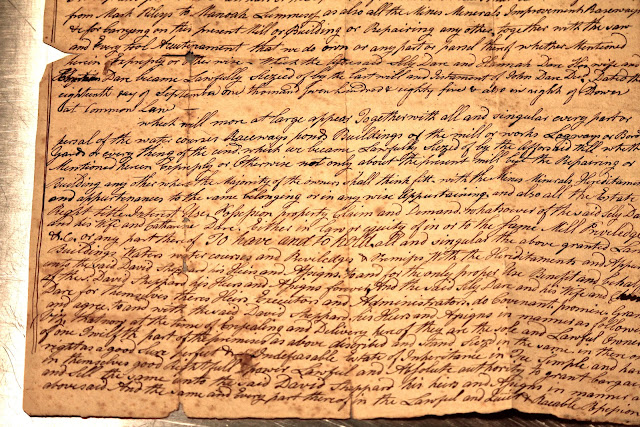 from Mark Rileys to Manoah Limmery as also all the Mines Minerals Improvements Raceways
& for carrying on this present Mill or Building or Repairing any other together with the saw
and every tool & utensiament that we do own or any part or parcel thereof whether Mentioned
herein Expressly or Otherwise which the aforesaid Dare and Hannah Dare His wife and
Dare became Lawfully Seized of by the Last will and Testament of John Dare Dec. Dated the
eighteenth day of September one thousand seven hundred & eighty five & also in right of Dower
at Common Law
which will more at large appear Together with all and singular every part or
persal of the water courses Raceways pond Buildings or the mill or works
every thing of the kind which we became Lawfully Seized of by the afforesaid Will whether
Mentioned herein Expressly or Otherwise not only about the present mill but the Repairing or
Building any other where the Majority of the owners shall think fitt with the Mines Minerals Hereditaments
and appurtenances to the same belonging or in any wise Appurtaining and also all the Estate
Right title Interest Use Possession property Claim and Demand whatsoever of the said Dare
and his wife and Dare Either in Law or equity of in or to the Same Mill Privelidges
&C, or any part thereof To have and to hold all and singular the above granted Land
Buildings Waters water courses and Priviledges & Premises With the Hereditaments and
the said David Sheppard his Heirs and Assigns to and for the only proper Use Benefit and
of the David Sheppard his Heirs and Assigns forever And the said Dare and his wife and
Dare for themselves theirs Heirs Executors and Administrators do Covenant promise Grant
and agree to and with the said David Sheppard his Heirs and Assigns in manner as follows
that at the time of Ensealing and Delivery hereof they are the sole and Lawful Owners
of one part of the premises as above discribed and Stand Seized in the same in there
right as a good sure perfect & Indefeasable estate of Inheritance in Fee Simple and have
in themselves good Rightfull Power Lawful and Absolute authority to grant bargain
and Sell the same unto the said David Sheppard his heirs and Assigns in manner as
above said And the same and Every part thereof in the Lawful and Quiet & Peaceable Possession